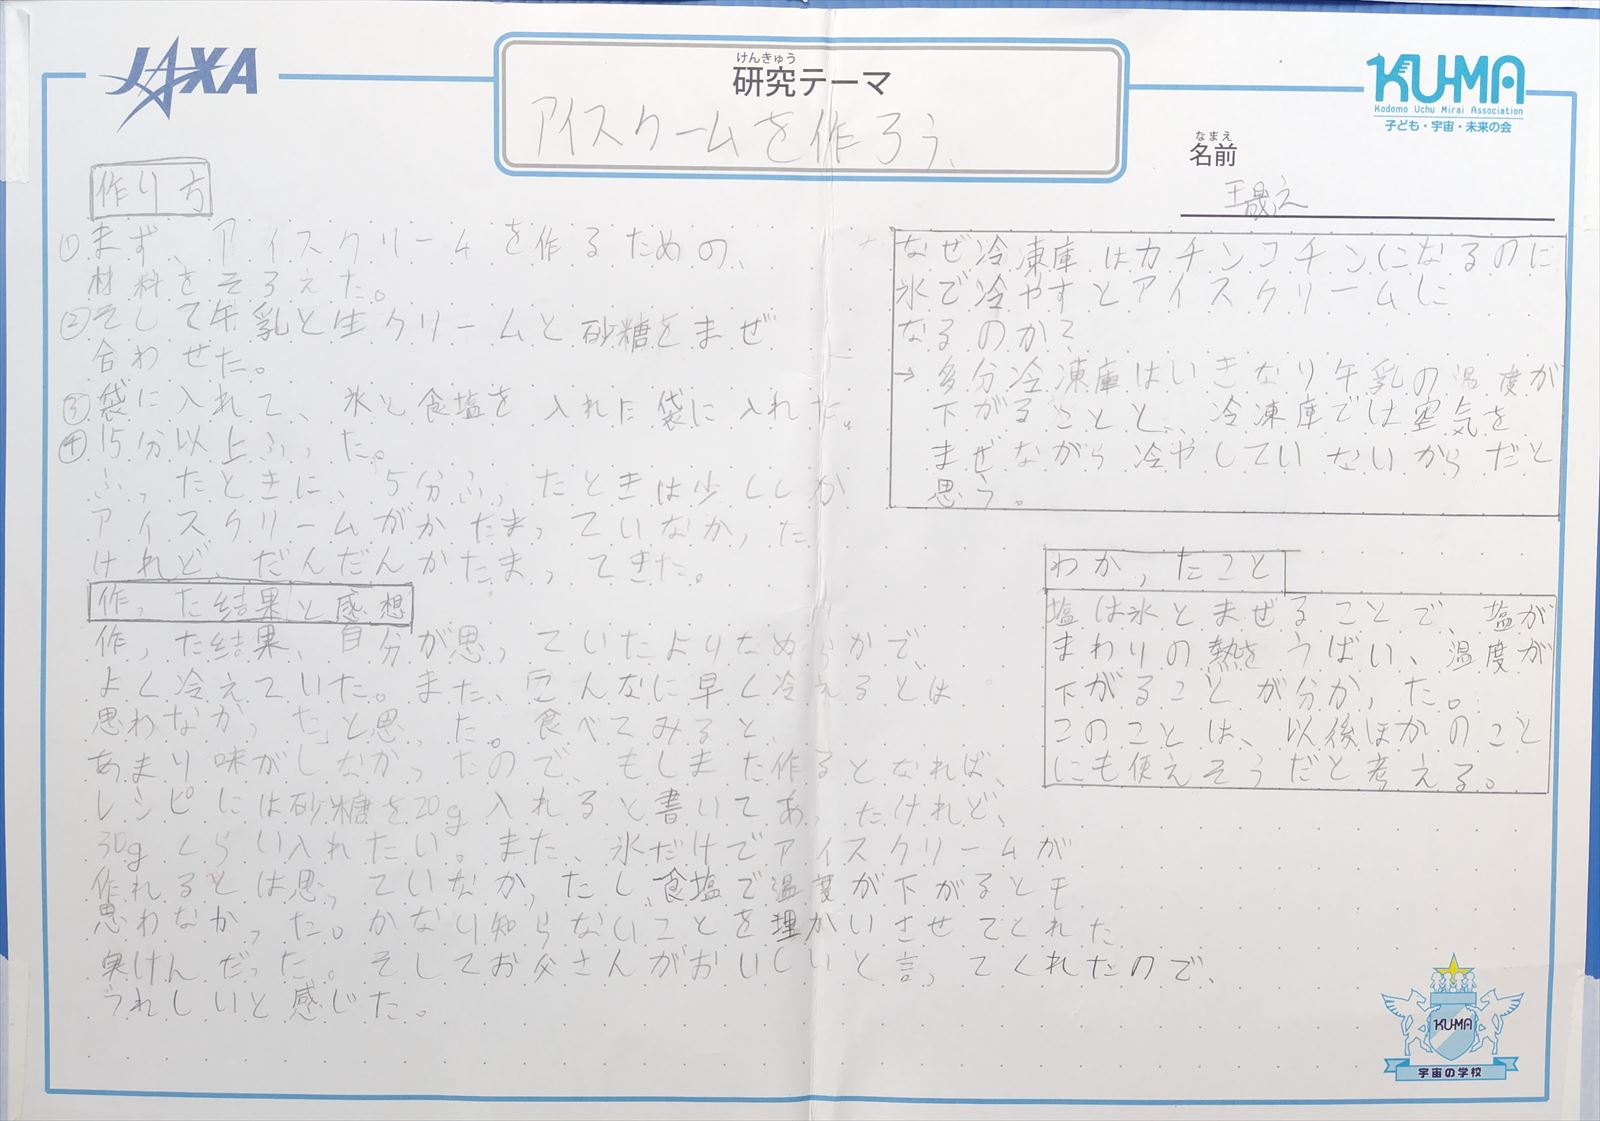 JAXA
けんきゅう
研究テーマ
アイスクームを作ろう、
KU-MA
Kodomo Uchu Mirai Association
子ども・宇宙・未来の会
なまえ
名前
作り方
①まず、アイスクリームを作るための、
材料をそろえた。
②そして牛乳と生クリームと砂糖をまぜ
合わせた。
③袋に入れて、氷と食塩を入れた袋に入れた。
④15分以上ふった。
ふったときに、5分ふったときは少ししか
アイスクリームがかたまっていなかった
けれど、だんだんかたまってきた。
作った結果と感想
作った結果、自分が思っていたよりなめらかで、
よく冷えていた。また、こんなに早く冷えるとは
思わなかった」と思った。食べてみると、
あまり味がしなかったので、もしまた作るとなれば、
レシピには砂糖を20g入れると書いてあったけれど、
30gくらい入れたい。また、氷だけでアイスクリームが
作れるとは思っていなかったし、食塩で温度が下がるとも
思わなかった。かなり知らないことを理かいさせてくれた
実けんだった。そしてお父さんがおいしいと言ってくれたので、
うれしいと感じた。
なぜ冷凍庫はカチンコチンになるのに
氷で冷やすとアイスクリームに
なるのか?
→多分冷凍庫はいきなり牛乳の温度が
下がることと、冷凍庫では空気を
まぜながら冷やしていないからだと
思う。
わかったこと
塩は氷とまぜることで、塩が
まわりの熱をうばい、温度が
下がることが分かった。
このことは、以後ほかのこと
にも使えそうだと考える。
KU-MA
宇宙の学校